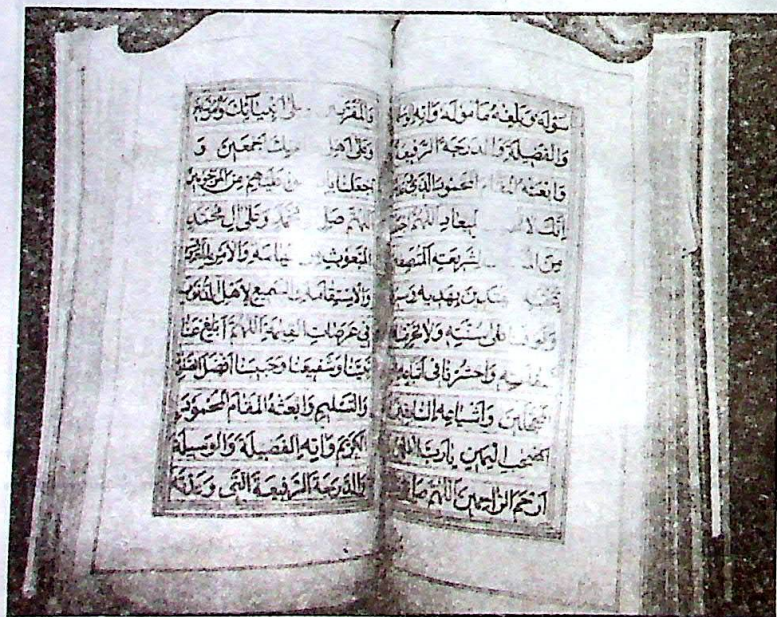 سؤله وبلغه مأموله وآته
والفضيلة والدرجة الرفيعة
وابعثه المقام المحمود الذي
إنك لا الميعاد اللهم
من لشريعته المتصفين
بمحبته المهتدين بهديه وسيرته
وتوفنا على سنته ولا تحرمنا
واحشرنا في أتباعه
المحجلين وأشياعه السابقين
أصحاب اليمين يا
أرحم الراحمين اللهم صل
والمقربين على أنبيائك
وعلى أهل أجمعين و
اجعلنا عليهم من المرحومين
اللهم صل محمد وعلى آل محمد
المبعوث من تهامة والآمر بالمعروف
والاستقامة والشفيع لأهل الذنوب
في عرصات القيمة اللهم أبلغ عنا
نبينا وشفيعنا وحبيبنا أفضل الصلوة
والتسليم وابعثه المقام المحمود
الكريم وآته الفضيلة والوسيلة
والدرجة الرفيعة التي وعدته